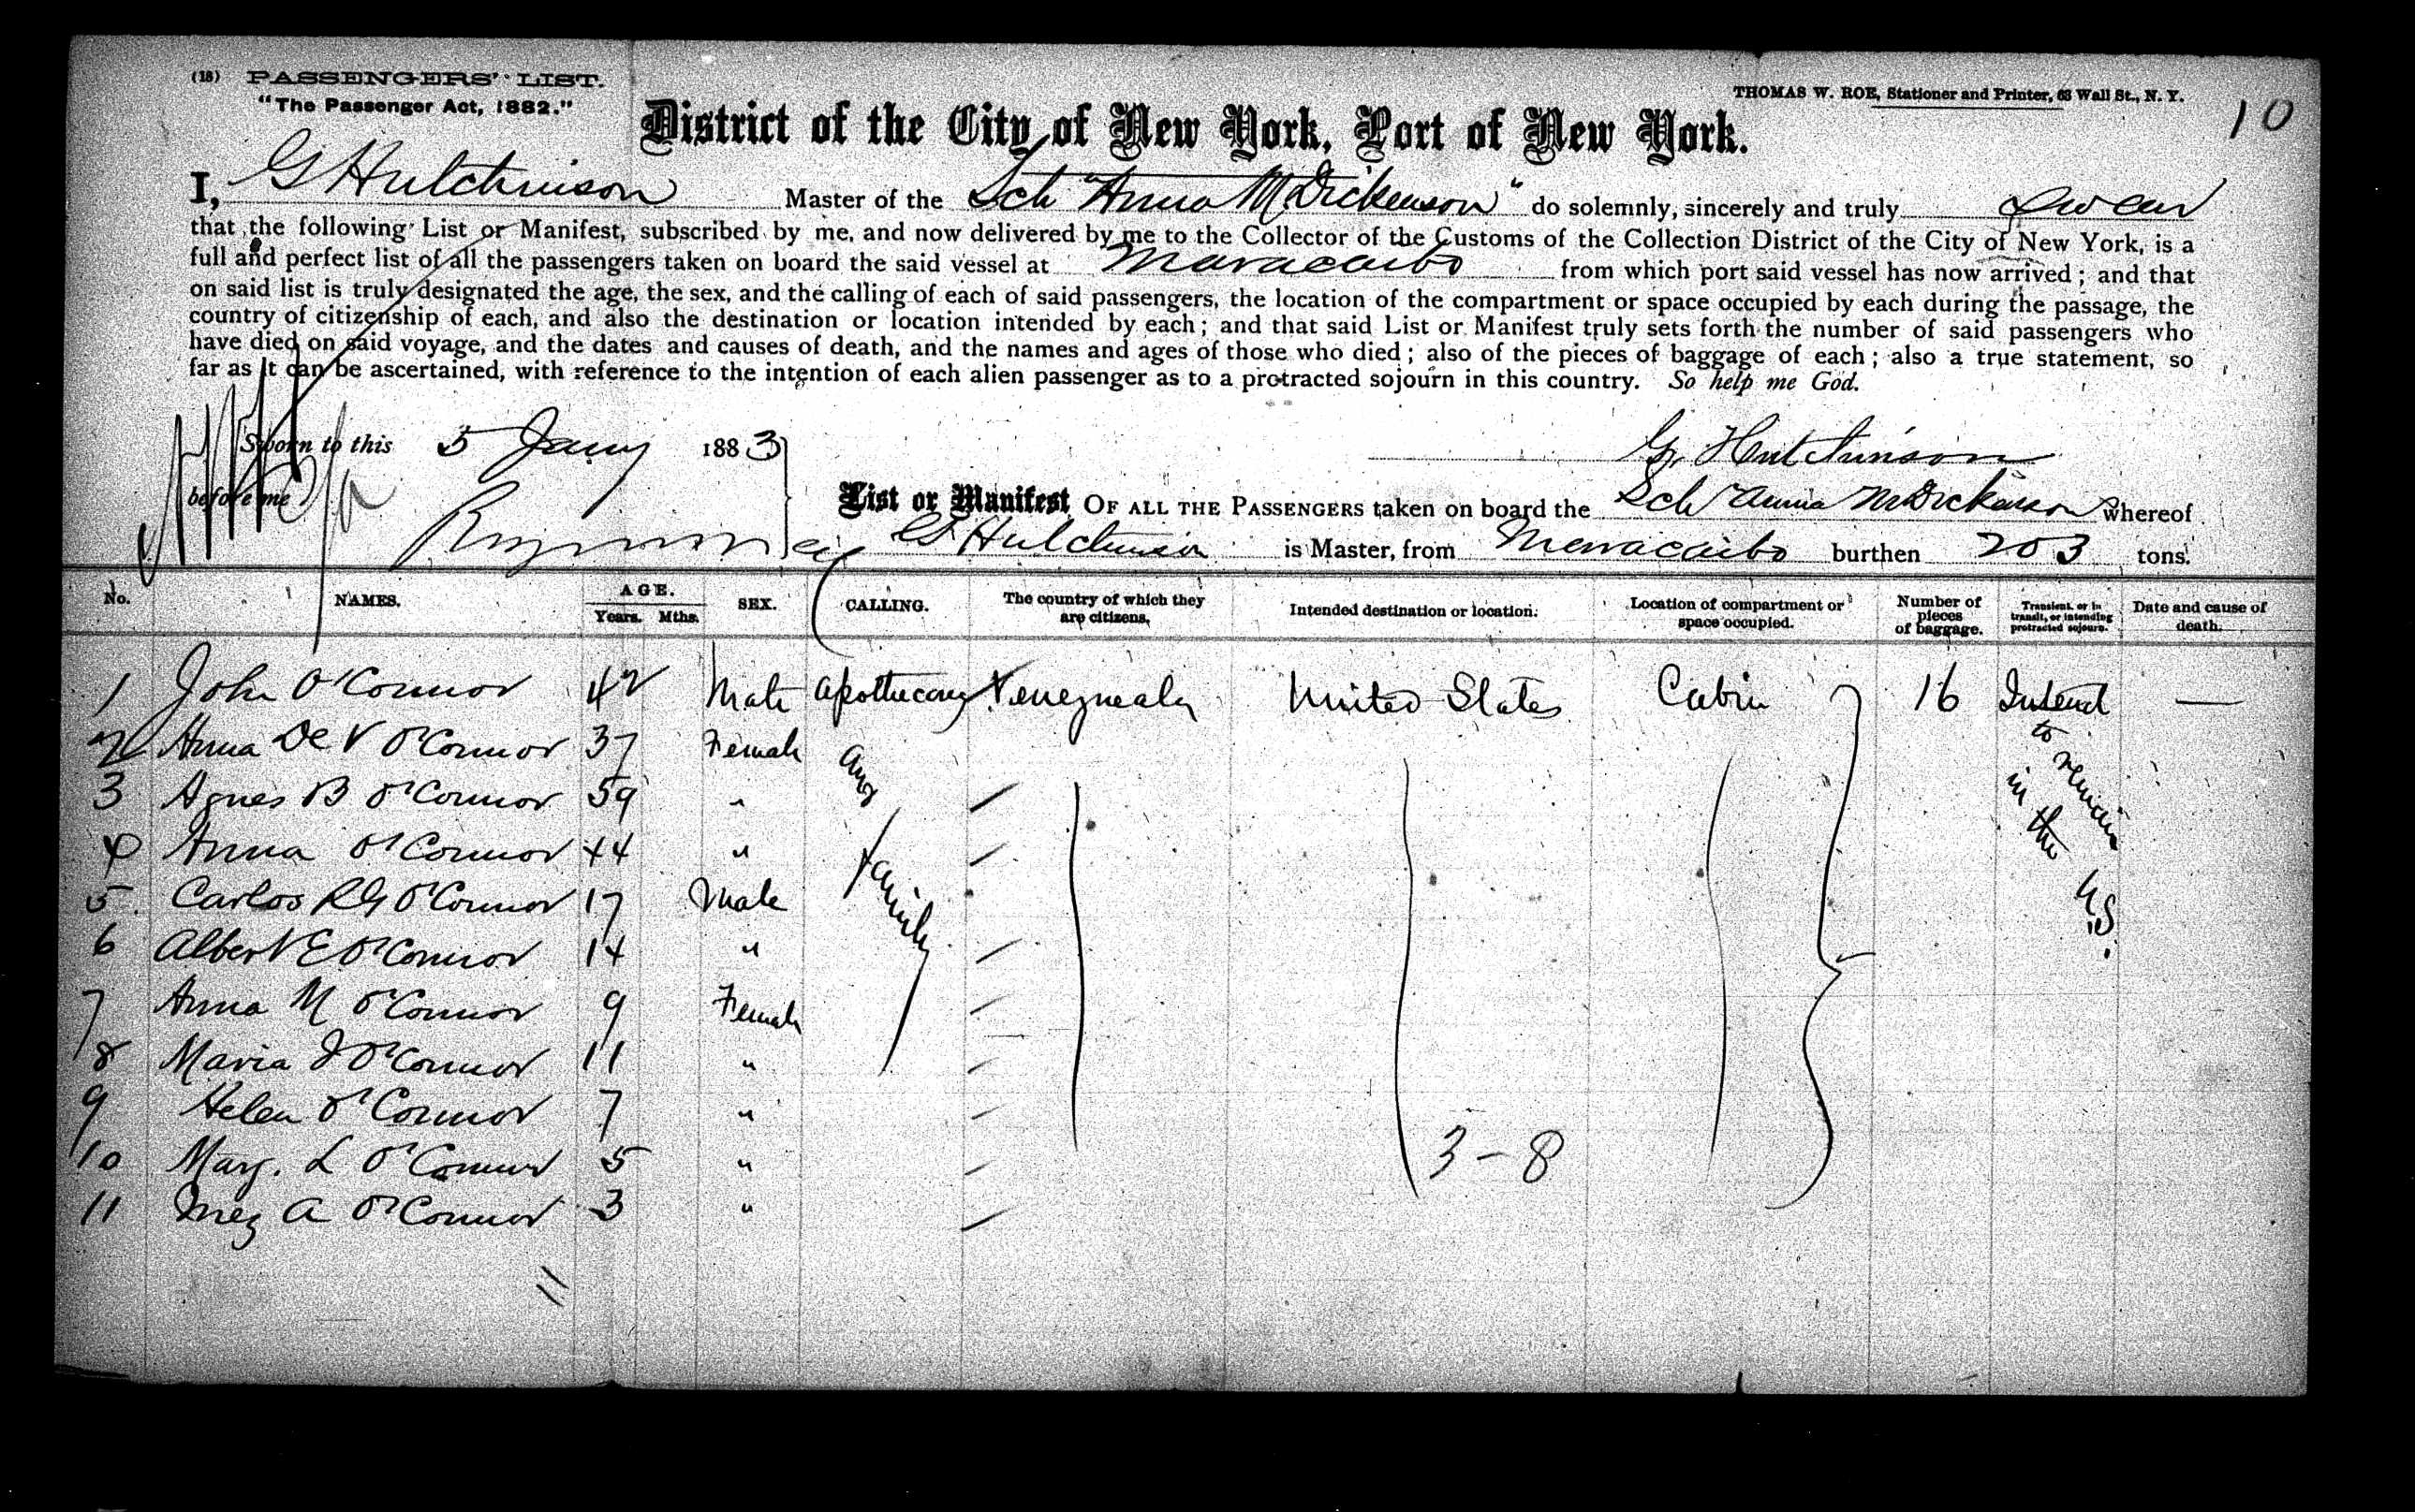 (18) PASSENGERS' LIST.
"The Passenger Act, 1882."
THOMAS W. ROE, Stationer and Printer, 63 Wall St., N. Y.
10
District of the City of New York, Port of New York.
I, G Hutchinson Master of the Sch "Anna M Dickenson" do solemnly, sincerely and truly swear
that the following List or Manifest, subscribed by me, and now delivered by me to the Collector of the Customs of the Collection District of the City of New York, is a
full and perfect list of all the passengers taken on board the said vessel at Maracaibo from which port said vessel has now arrived; and that
on said list is truly designated the age, the sex, and the calling of each of said passengers, the location of the compartment or space occupied by each during the passage, the
country of citizenship of each, and also the destination or location intended by each; and that said List or Manifest truly sets forth the number of said passengers who
have died on said voyage, and the dates and causes of death, and the names and ages of those who died; also of the pieces of baggage of each; also a true statement, so
far as it can be ascertained, with reference to the intention of each alien passenger as to a protracted sojourn in this country. So help me God.
Sworn to this 5 Jany 1883
G. Hutchinson
before me
List or Manifest OF ALL THE PASSENGERS taken on board the Sch "Anna M Dickenson whereof
G Hutchinson is Master, from Maracaibo burthen 203 tons.
No. NAMES. AGE. Years. Mths. SEX. CALLING. The country of which they are citizens. Intended destination or location. Location of compartment or space occupied. Number of pieces of baggage. Transient, or in transit, or intending protracted sojourn. Date and cause of death.
1 John O'Connor 42 Male Apothecary Venezuealy United States Cabin 16 Intend —
2 Anna De V O'Connor 37 Female and to remain
3 Agnes B O'Connor 59 " in the
4 Anna O'Connor 44 " family
5 Carlos RG O'Connor 17 Male U.S.
6 Albert E O'Connor 14 "
7 Anna M O'Connor 9 Female
8 Maria J O'Connor 11 "
9 Helen O'Connor 7 "
10 Marg. L O'Connor 5 " 3-8
11 Inez A O'Connor 3 "